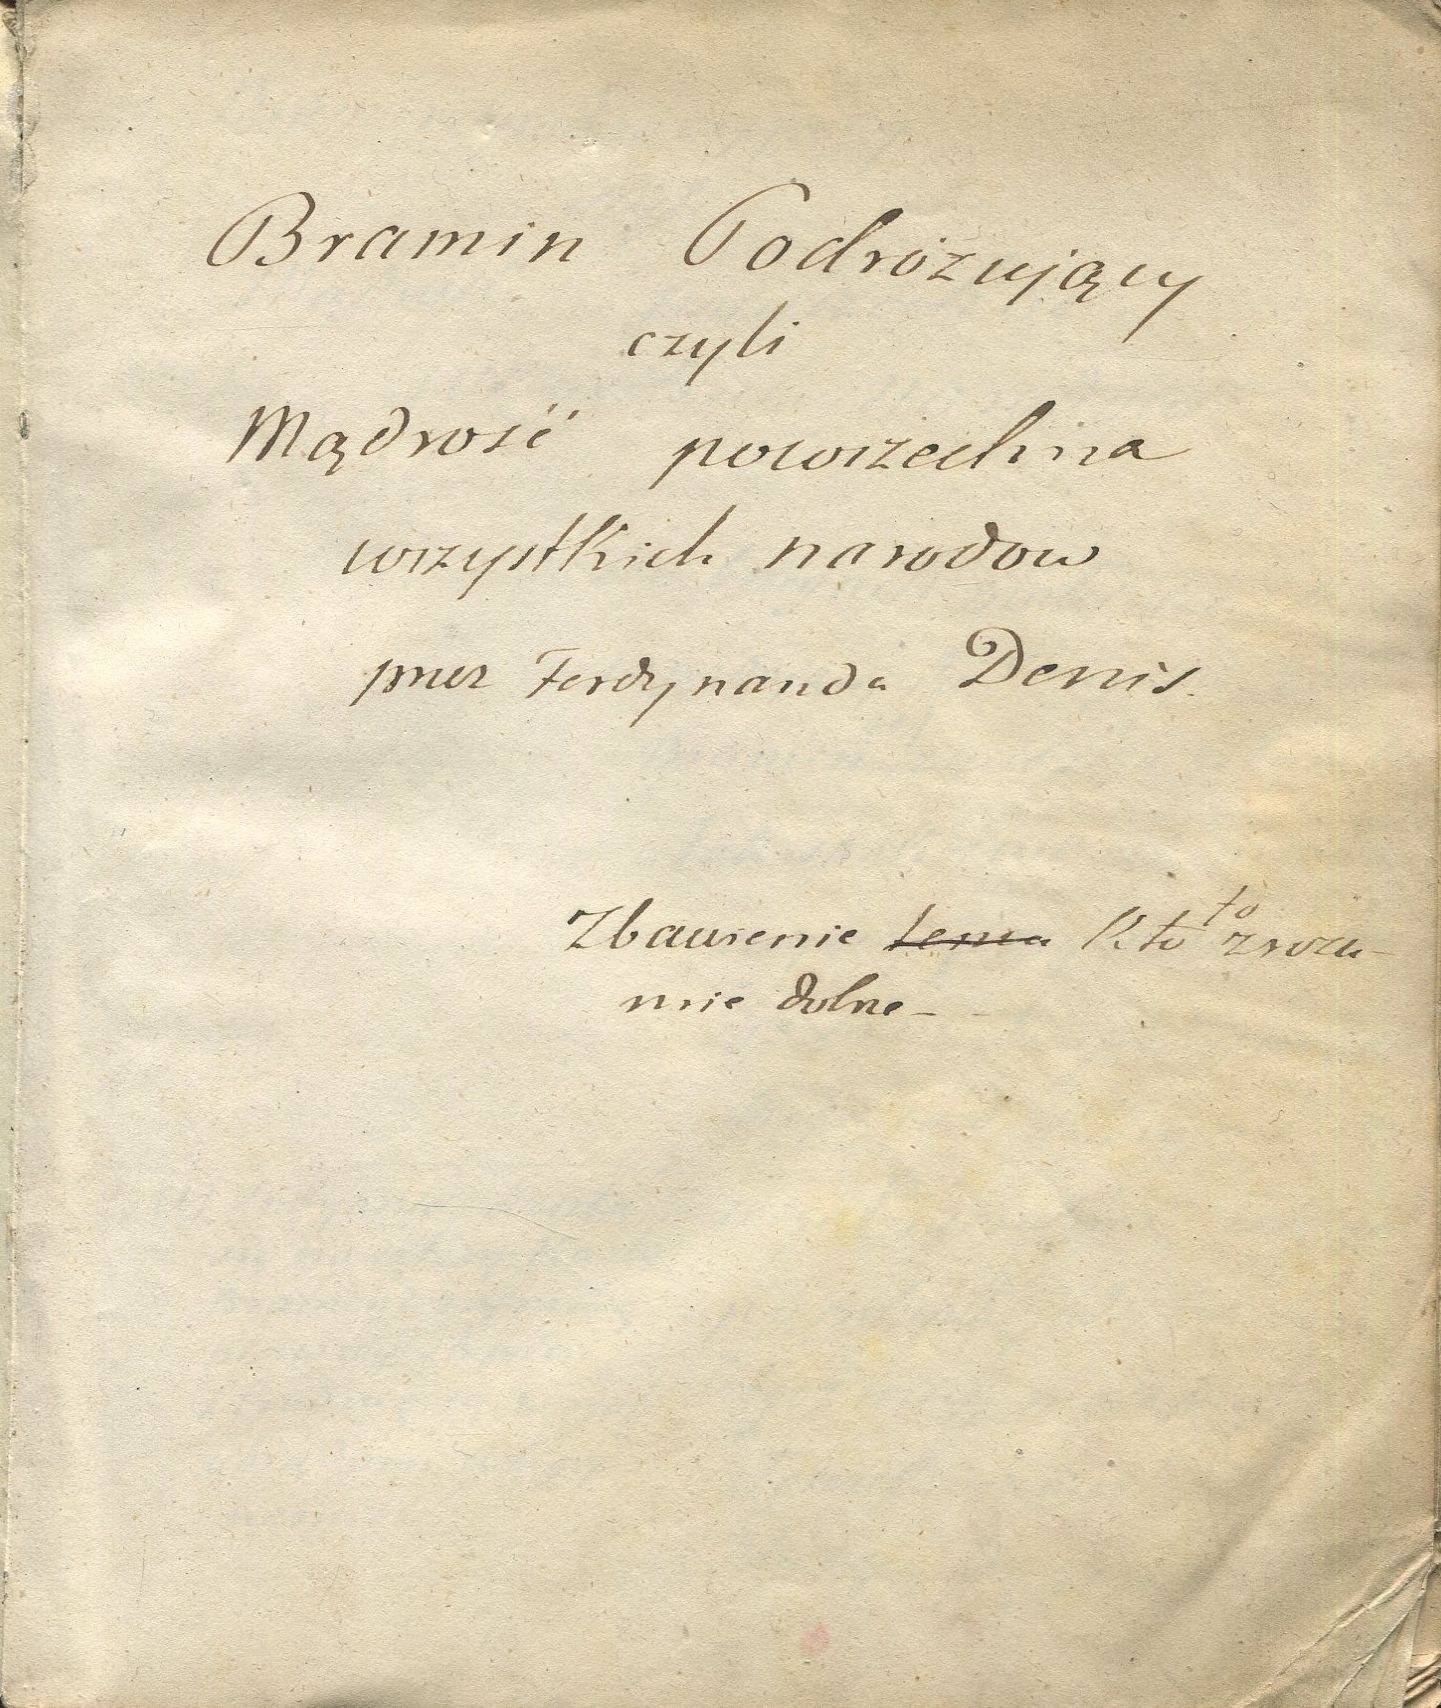 Bramin Podróżujący
czyli
Mądrość powszechna
wszystkich narodow
przez Ferdynanda Denis.
Zbawienie temu kto to zrozu-
mie